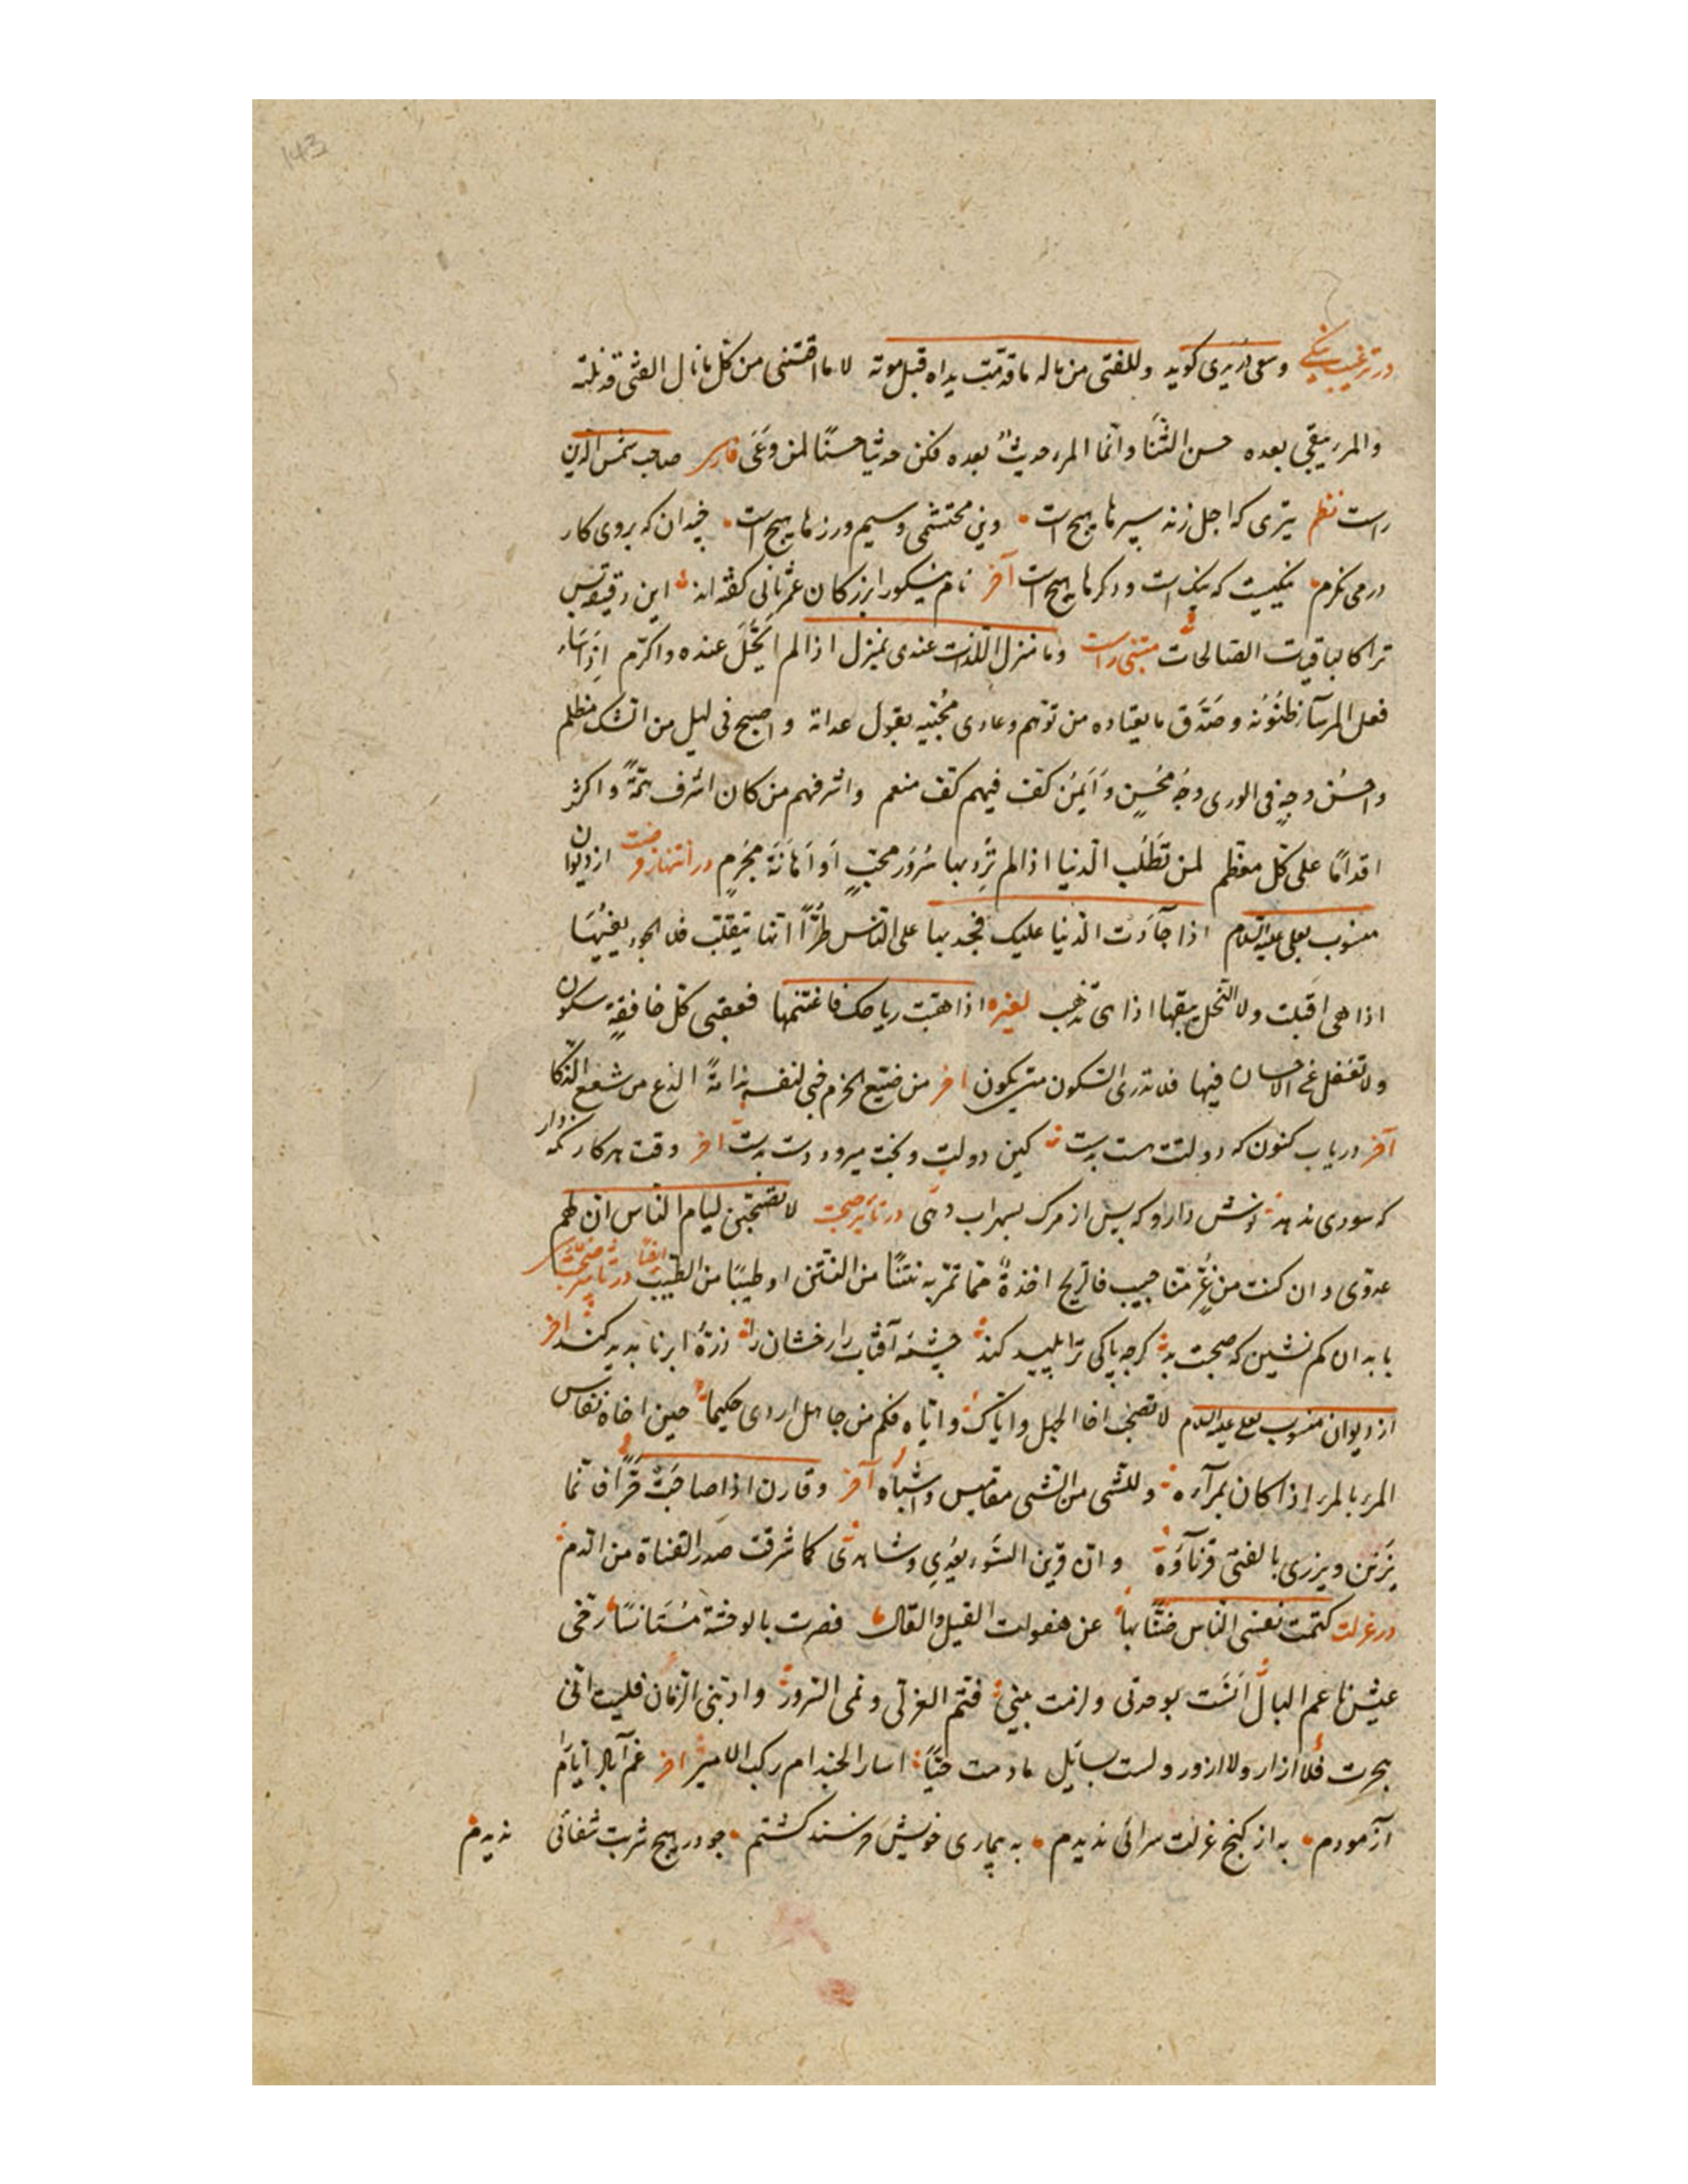 143
در ترغیب نیکی وسعی دریری کوید وللفتی من ماله ما قدمت یداه قبل موته لا ما اقتنی من کل ما نال الفتی قد نلته
والمرء یبقی بعده حسن الثنا وانما المرء حدیث بعده فکن حدیثا حسنا لمن وعی فارسی صاحب شمس الدین
راست نظم تیری که اجل زند سپرها هیچ است وین محتشمی وسیم وزرها هیچ است چندان که بروی کار
درمی نکرم نیکیست که نیک است ودکرها هیچ است آخر نام نیکو را بزرکان عمر ثانی کفته اند این دقیقه بس
ترا کالباقیات الصالحات متنبی راست وما منزل اللذات عندی بمنزل اذا لم ابجل عنده واکرم اذا ساء
فعل المرء سآء ظنونه وصدق ما یعتاده من توهم وعادی محبیه بقول عداته واصبح فی لیل من الشک مظلم
واحسن وجه فی الوری وجه محسن وایمن کف فیهم کف منعم واشرفهم من کان اشرف همة واکثر
اقداما علی کل معظم لمن تطلب الدنیا اذا لم ترد بها سرور محب او اهانة مجرم در انتهاز فرصت از دیوان
منسوب بعلی علیه السلام اذا جآدت الدنیا علیک فجد بها علی الناس طرا انها تتقلب فلا الجود یفنیها
اذا هی اقبلت ولا البخل یبقیها اذا هی تذهب لغیره اذا هبت ریاحک فاغتنمها فعقبی کل خافقة سکون
ولا تغفل عن الاحسان فیها فلا تدری السکون متی یکون آخر من ضیع الحزم فی لنفسه ندامة الذع من شفع الذکا
آخر دریاب کنون که دولتت هست بدست کین دولت وبخت میرود دست بدست آخر وقت هر کار نکه دار
که سودی ندهد نوش دارو که پس از مرک بسهراب دهی در تأثیر صحبت لا تصحبن لیام الناس ان لهم
عدوی وان کنت من غر منا جیب فالریح اخذة مما تمر به نتنا من النتن او طیبا من الطیب ایضا در تأثیر صحبت
با بدان کم نشین که صحبت بد کرچه پاکی ترا پلید کند چشمهٔ آفتاب رخشان را ذرهٔ ابر نا بدید کند آخر
از دیوان منسوب بعلی علیه السلام لا تصحب اخا الجهل وایاک وایاه فکم من جاهل اردی حکیما حین اخاه تقاس
المرء بالمرء اذا کان بمرآه وللشی من الشی مقاییس واشباه آخر وقارن اذا صاحبت قرا فانما
یزین ویزری بالفتی قرنآؤه وان قرین السوء یعدی وشاهدی کما شرقت صدر القناة من الدم
در عزلت کتمت نفسی الناس ضنا بها عن هفوات القیل والقال فصرت بالوحشة مستانسا رخی
عیش ناعم البال آنست بوحدتی ولزمت بیتی فتم العز لی ونمی السرور وادبنی الزمان فلیت انی
هجرت فلا ازار ولا ازور ولست بسائل ما دمت حیا اسار الجند ام رکب الامیر آخر غم آباد ایام
آزمودم به از کنج عزلت سرائی ندیدم به بیماری خویش خرسند کشتم چو در هیچ شربت شفائی ندیدم